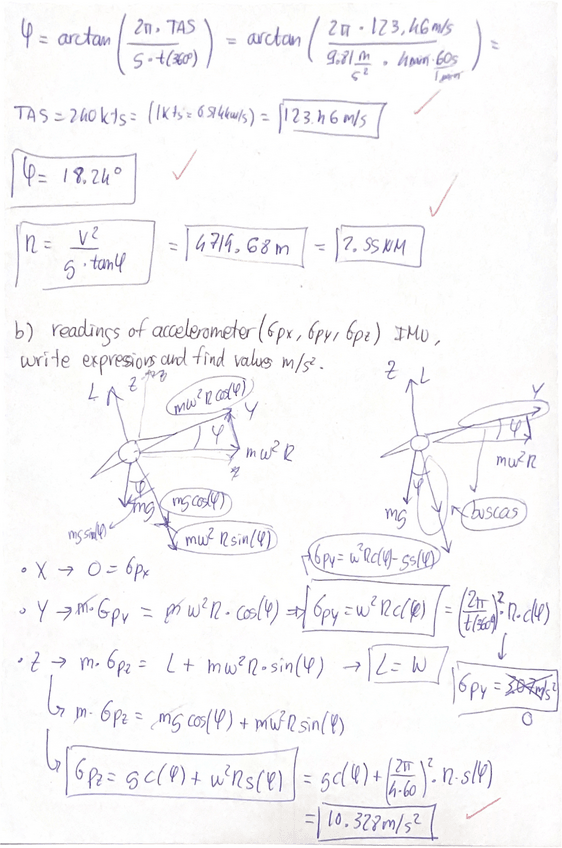 φ = arctan(2π · TAS / g · t(360°)) = arctan(2π · 123,46 m/s / 9.81 m/s² · 4min · 60s/1min) =
TAS = 240 kts = = 123.46 m/s
φ = 18.24°
R = V² / g · tanφ = 4719,68 m = 2.55 NM
b) readings of accelerometer (Gpx, Gpy, Gpz) IMU,
write expresions and find values m/s².
L Z mω²R cos(φ) Y φ mω²R
φ mg mg cos(φ)
mg sin(φ) mω²R sin(φ)
Z L Y φ mω²R
φ mg buscas
Gpy = ω²Rc(φ) - gs(φ)
• X → 0 = Gpx
• Y → m · Gpy = m ω²R · cos(φ) → Gpy = ω²Rc(φ) = (2π / t(360°))² · R · c(φ)
• Z → m · Gpz = L + mω²R · sin(φ) → L = W
Gpy = 3.07 m/s²
0
m · Gpz = mg cos(φ) + mω²R sin(φ)
Gpz = gc(φ) + ω²Rs(φ) = gc(φ) + (2π / 4·60)² · R · s(φ)
= 10.328 m/s²